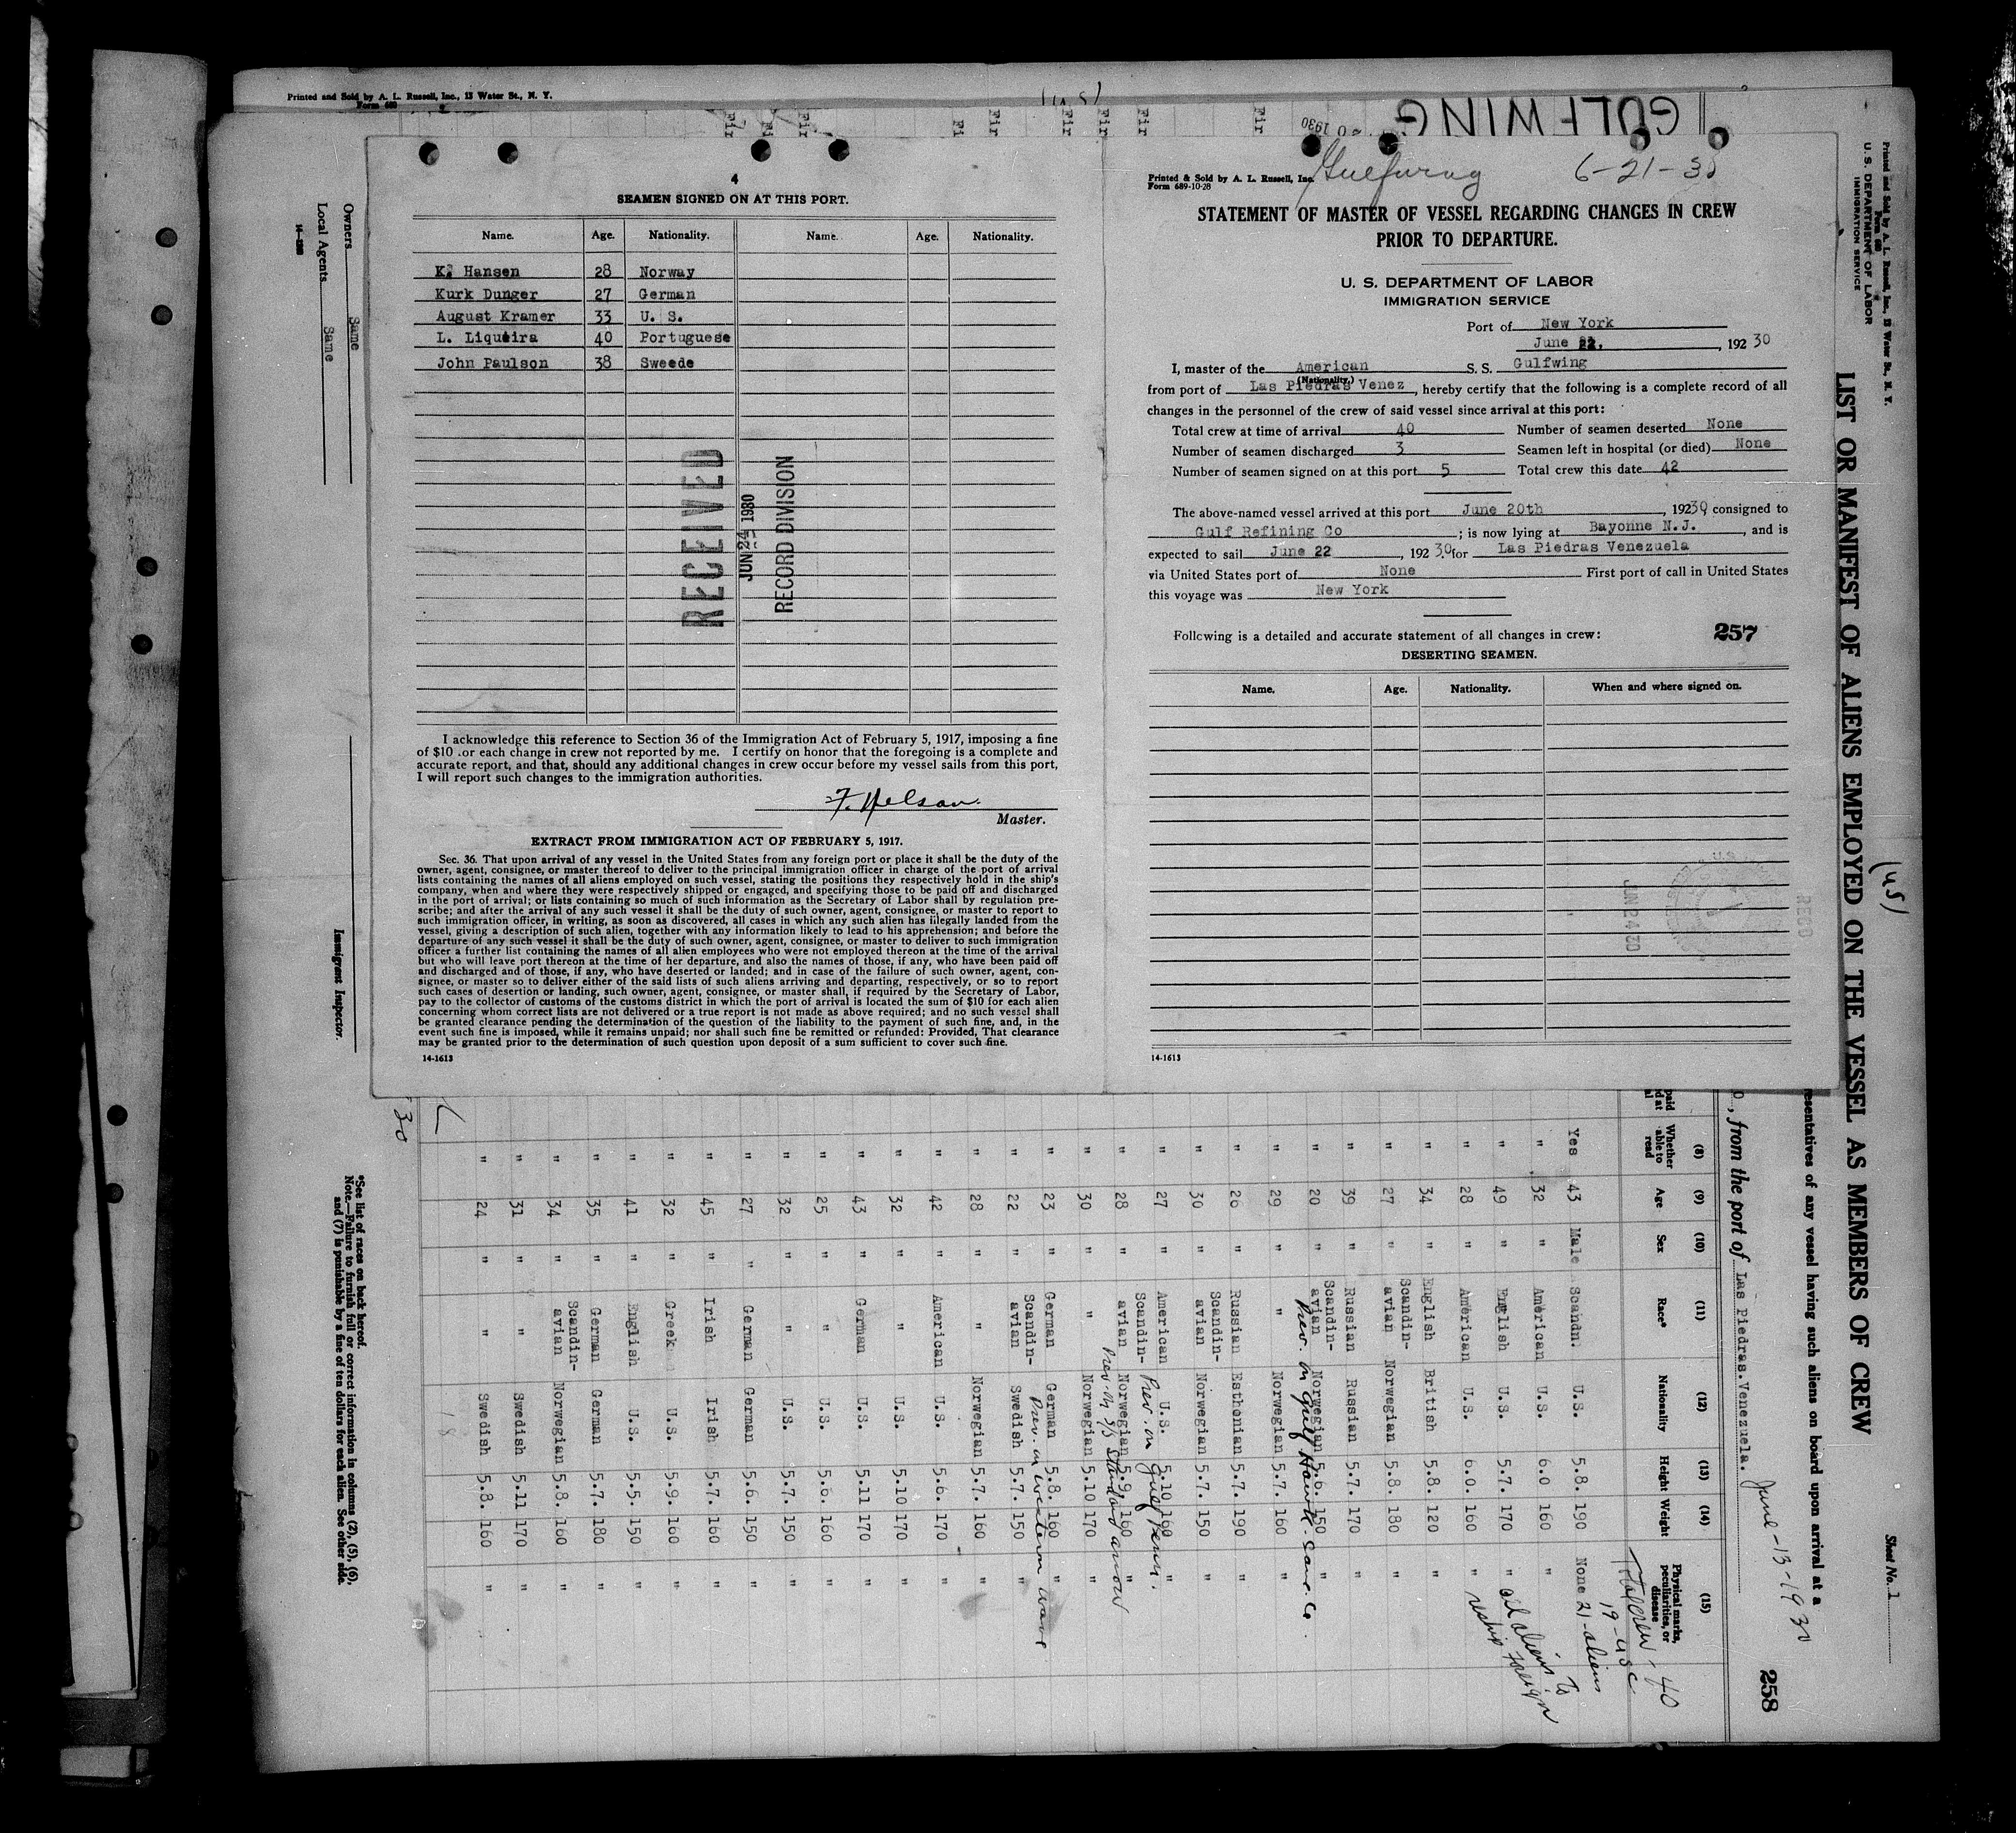 Printed and Sold by A. L. Russell, Inc., 13 Water St., N. Y.
Form 689
GULFWING
4
SEAMEN SIGNED ON AT THIS PORT.
Name. Age. Nationality. Name. Age. Nationality.
K. Hansen 28 Norway
Kurk Dunger 27 German
August Kramer 33 U. S.
L. Liqueira 40 Portuguese
John Paulson 38 Sweede
RECEIVED
JUN 24 1930
RECORD DIVISION
I acknowledge this reference to Section 36 of the Immigration Act of February 5, 1917, imposing a fine
of $10 .or each change in crew not reported by me. I certify on honor that the foregoing is a complete and
accurate report, and that, should any additional changes in crew occur before my vessel sails from this port,
I will report such changes to the immigration authorities.
F. Nelson
Master.
EXTRACT FROM IMMIGRATION ACT OF FEBRUARY 5, 1917.
Sec. 36. That upon arrival of any vessel in the United States from any foreign port or place it shall be the duty of the
owner, agent, consignee, or master thereof to deliver to the principal immigration officer in charge of the port of arrival
lists containing the names of all aliens employed on such vessel, stating the positions they respectively hold in the ship's
company, when and where they were respectively shipped or engaged, and specifying those to be paid off and discharged
in the port of arrival; or lists containing so much of such information as the Secretary of Labor shall by regulation pre-
scribe; and after the arrival of any such vessel it shall be the duty of such owner, agent, consignee, or master to report to
such immigration officer, in writing, as soon as discovered, all cases in which any such alien has illegally landed from the
vessel, giving a description of such alien, together with any information likely to lead to his apprehension; and before the
departure of any such vessel it shall be the duty of such owner, agent, consignee, or master to deliver to such immigration
officer a further list containing the names of all alien employees who were not employed thereon at the time of the arrival
but who will leave port thereon at the time of her departure, and also the names of those, if any, who have been paid off
and discharged and of those, if any, who have deserted or landed; and in case of the failure of such owner, agent, con-
signee, or master so to deliver either of the said lists of such aliens arriving and departing, respectively, or so to report
such cases of desertion or landing, such owner, agent, consignee, or master shall, if required by the Secretary of Labor,
pay to the collector of customs of the customs district in which the port of arrival is located the sum of $10 for each alien
concerning whom correct lists are not delivered or a true report is not made as above required; and no such vessel shall
be granted clearance pending the determination of the question of the liability to the payment of such fine, and, in the
event such fine is imposed, while it remains unpaid; nor shall such fine be remitted or refunded: Provided, That clearance
may be granted prior to the determination of such question upon deposit of a sum sufficient to cover such fine.
14-1613
Gulfwing 6-21-30
Printed & Sold by A. L. Russell, Inc.
Form 689-10-28
STATEMENT OF MASTER OF VESSEL REGARDING CHANGES IN CREW
PRIOR TO DEPARTURE.
U. S. DEPARTMENT OF LABOR
IMMIGRATION SERVICE
Port of New York
June 22, 192 30
I, master of the American S. S. Gulfwing
(Nationality.)
from port of Las Piedras Venez, hereby certify that the following is a complete record of all
changes in the personnel of the crew of said vessel since arrival at this port:
Total crew at time of arrival 40 Number of seamen deserted None
Number of seamen discharged 3 Seamen left in hospital (or died) None
Number of seamen signed on at this port 5 Total crew this date 42
The above-named vessel arrived at this port June 20th, 19230 consigned to
Gulf Refining Co; is now lying at Bayonne N.J., and is
expected to sail June 22, 192 30 for Las Piedras Venezuela
via United States port of None First port of call in United States
this voyage was New York
Following is a detailed and accurate statement of all changes in crew: 257
DESERTING SEAMEN.
Name. Age. Nationality. When and where signed on.
14-1613
Owners Same
Local Agents Same
Immigrant Inspector.
Printed and Sold by A. L. Russell, Inc., 13 Water St., N. Y.
Form 689
U. S. DEPARTMENT OF LABOR
IMMIGRATION SERVICE
Sheet No. 1
LIST OR MANIFEST OF ALIENS EMPLOYED ON THE VESSEL AS MEMBERS OF CREW
(45)
esentatives of any vessel having such aliens on board upon arrival at a
, from the port of Las Piedras.Venezuela. June-13-1930
258
(8) (9) (10) (11) (12) (13) (14) (15)
Whether able to read Age Sex Race* Nationality Height Weight Physical marks, peculiarities, or disease
Total crew 40
19 - usc
21 - aliens
all aliens to
reship foreign
Yes 43 Male Scandn. U.S. 5.8. 190 None
" 32 " American U.S. 6.0 160 "
" 49 " English U.S. 5.7. 170 "
" 28 " American U.S. 6.0. 160 "
" 34 " English British 5.8. 120 "
" 27 " Scandin-avian Norwegian 5.8. 180 "
" 39 " Russian Russian 5.7. 170 "
" 20 " Scandin-avian Norwegian 5.6. 150 "
Prev. on Gulf Hawk. Same Co.
" 29 " " Norwegian 5.7. 160 "
" 26 " Russian Esthonian 5.7. 190 "
" 30 " Scandin-avian Norwegian 5.7. 150 "
" 27 " American U.S. 5.10 160 "
Prev. on Gulf Penn.
" 28 " Scandin-avian Norwegian 5.9. 160 "
Prev. on S/S Standard Arrow
" 30 " " Norwegian 5.10 170 "
" 23 " German German 5.8. 160 "
Prev. on Western Wave
" 22 " Scandin-avian Swedish 5.7. 150 "
" 28 " " Norwegian 5.7. 160 "
" 42 " American U.S. 5.6. 170 "
" 32 " " U.S. 5.10 170 "
" 43 " German U.S. 5.11 170 "
" 25 " " U.S. 5.6. 160 "
" 32 " " U.S. 5.7. 150 "
" 27 " German German 5.6. 150 "
" 45 " Irish Irish 5.7. 160 "
" 32 " Greek U.S. 5.9. 160 "
" 41 " English U.S. 5.5. 150 "
" 35 " German German 5.7. 180 "
" 34 " Scandin-avian Norwegian 5.8. 160 "
" 31 " " Swedish 5.11 170 "
" 24 " " Swedish 5.8. 160 "
30
*See list of races on back hereof.
Note.—Failure to furnish full or correct information in columns (2), (5), (6),
and (7) is punishable by a fine of ten dollars for each alien. See other side.